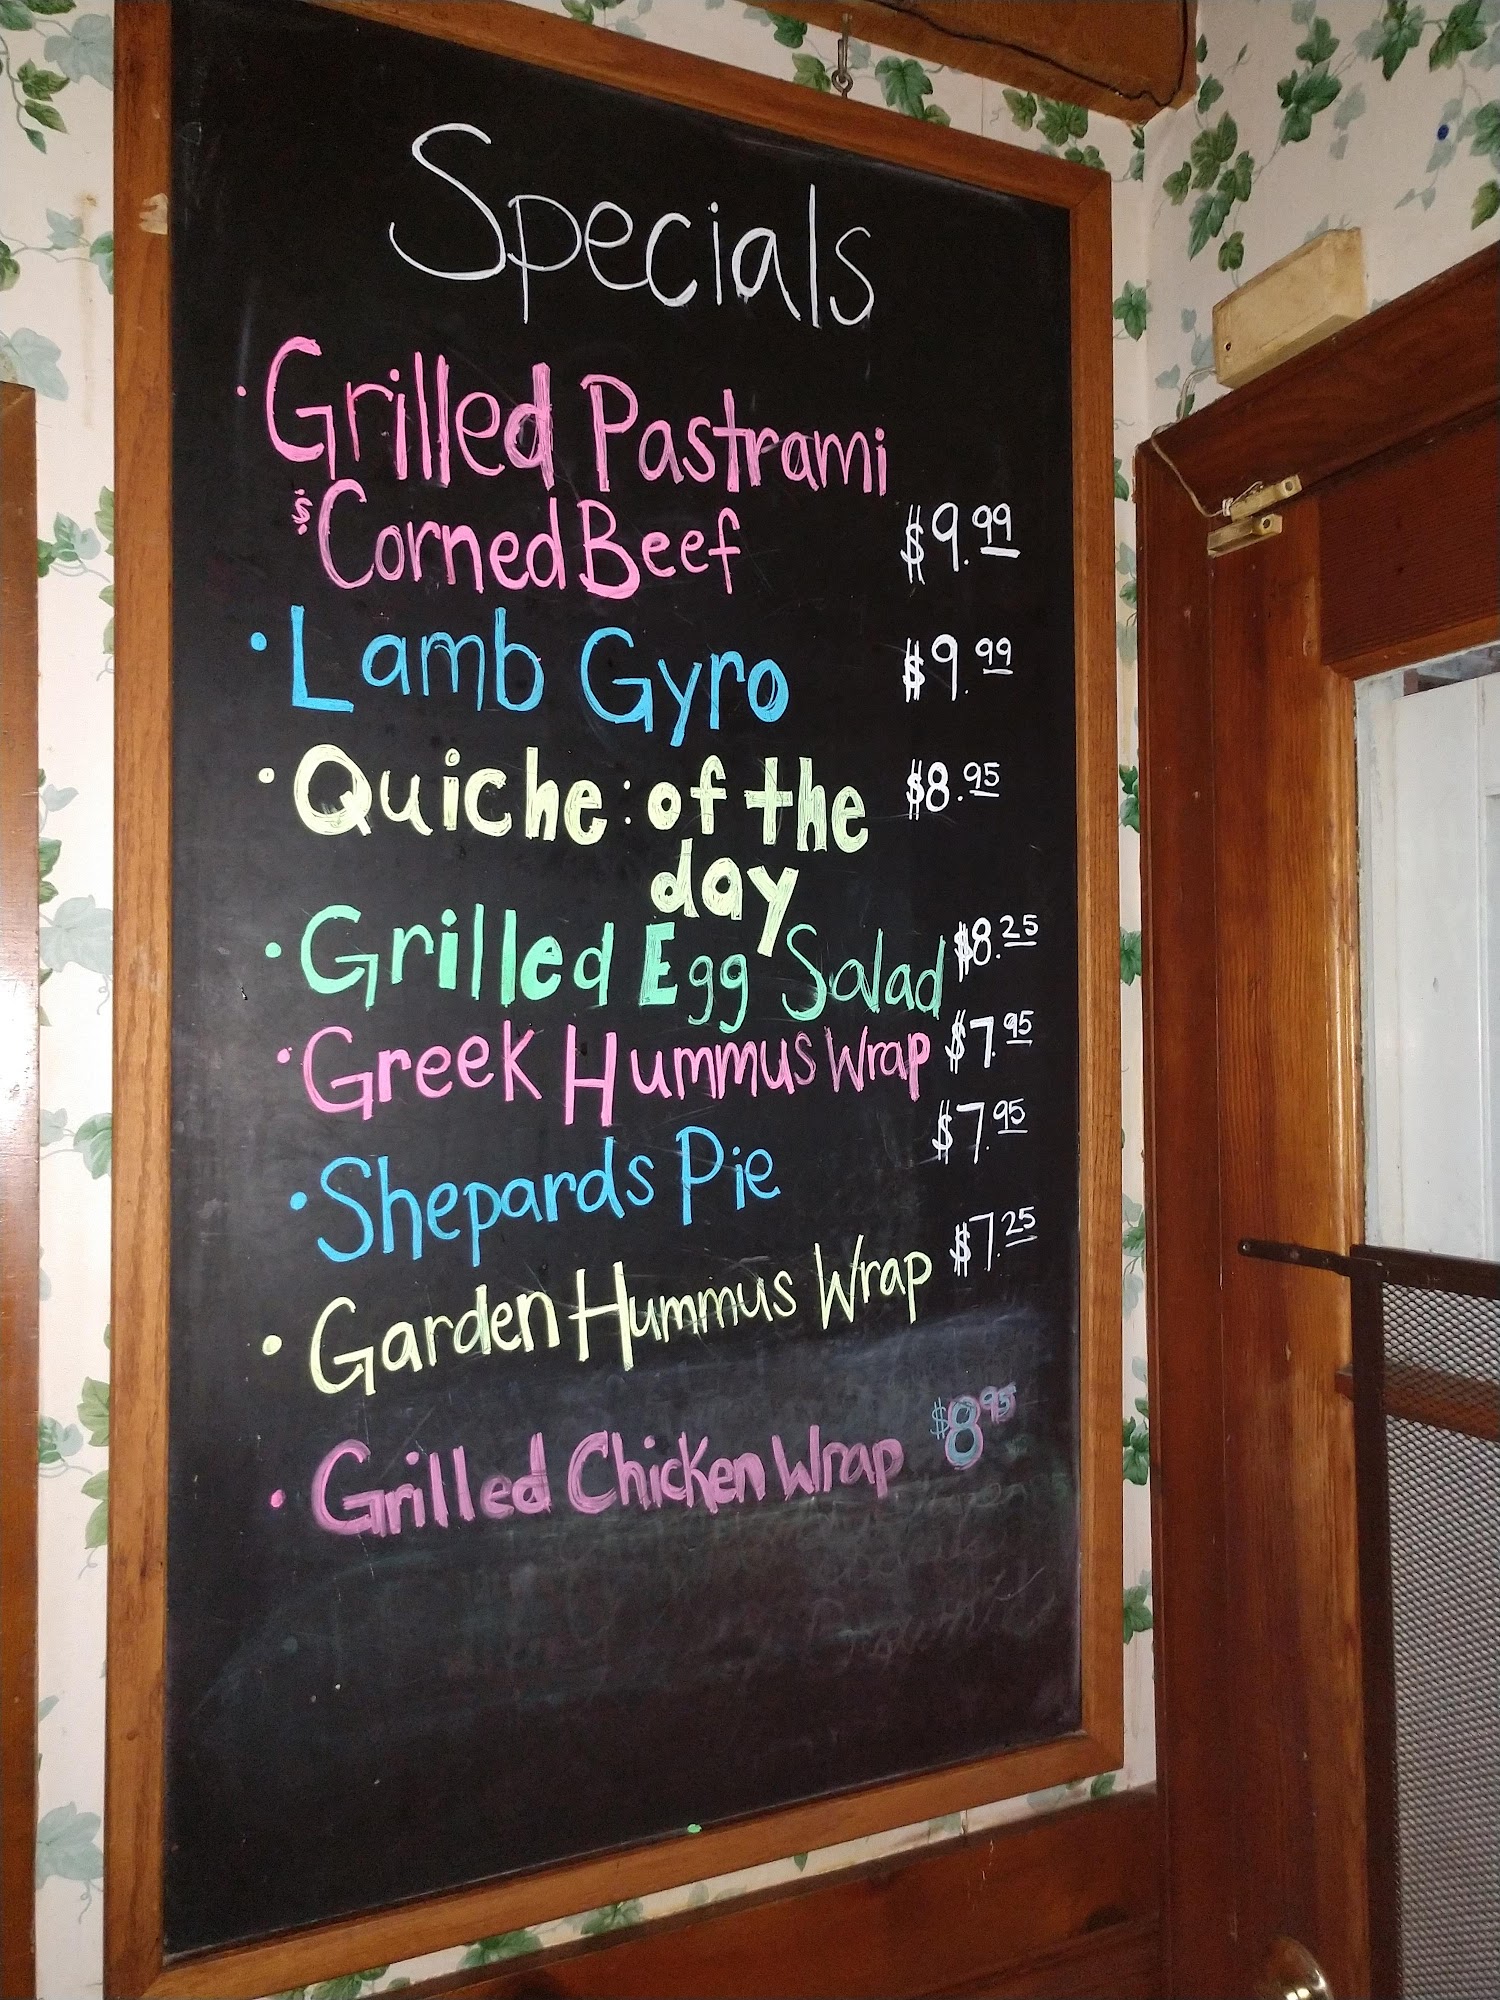 Specials
· Grilled Pastrami
& Corned Beef $9.99
· Lamb Gyro $9.99
· Quiche: of the $8.95
day
· Grilled Egg Salad $8.25
· Greek Hummus Wrap $7.95
· Shepards Pie $7.95
· Garden Hummus Wrap $7.25
· Grilled Chicken Wrap $8.95